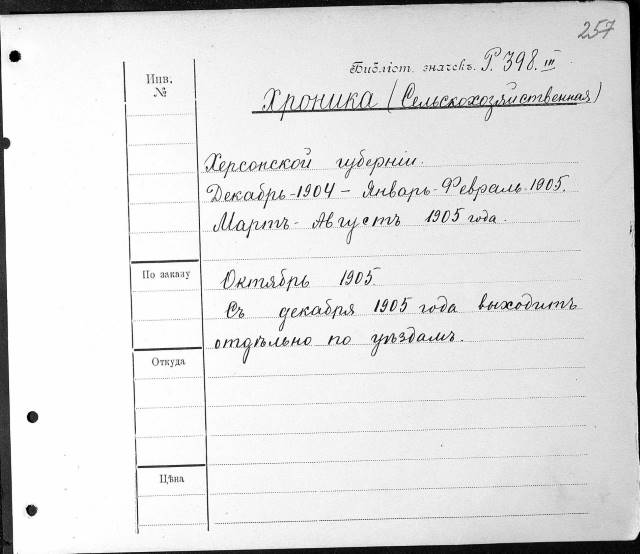 257
Библіот. значекъ. Р. 398. III
Инв.
№
Хроника (Сельскохозяйственная)
Херсонской губерніи.
Декабрь-1904 - Январь-Февраль-1905.
Мартъ-Августъ 1905 года.
По заказу
Октябрь 1905.
Съ декабря 1905 года выходитъ
отдѣльно по уѣздамъ.
Откуда
Цѣна